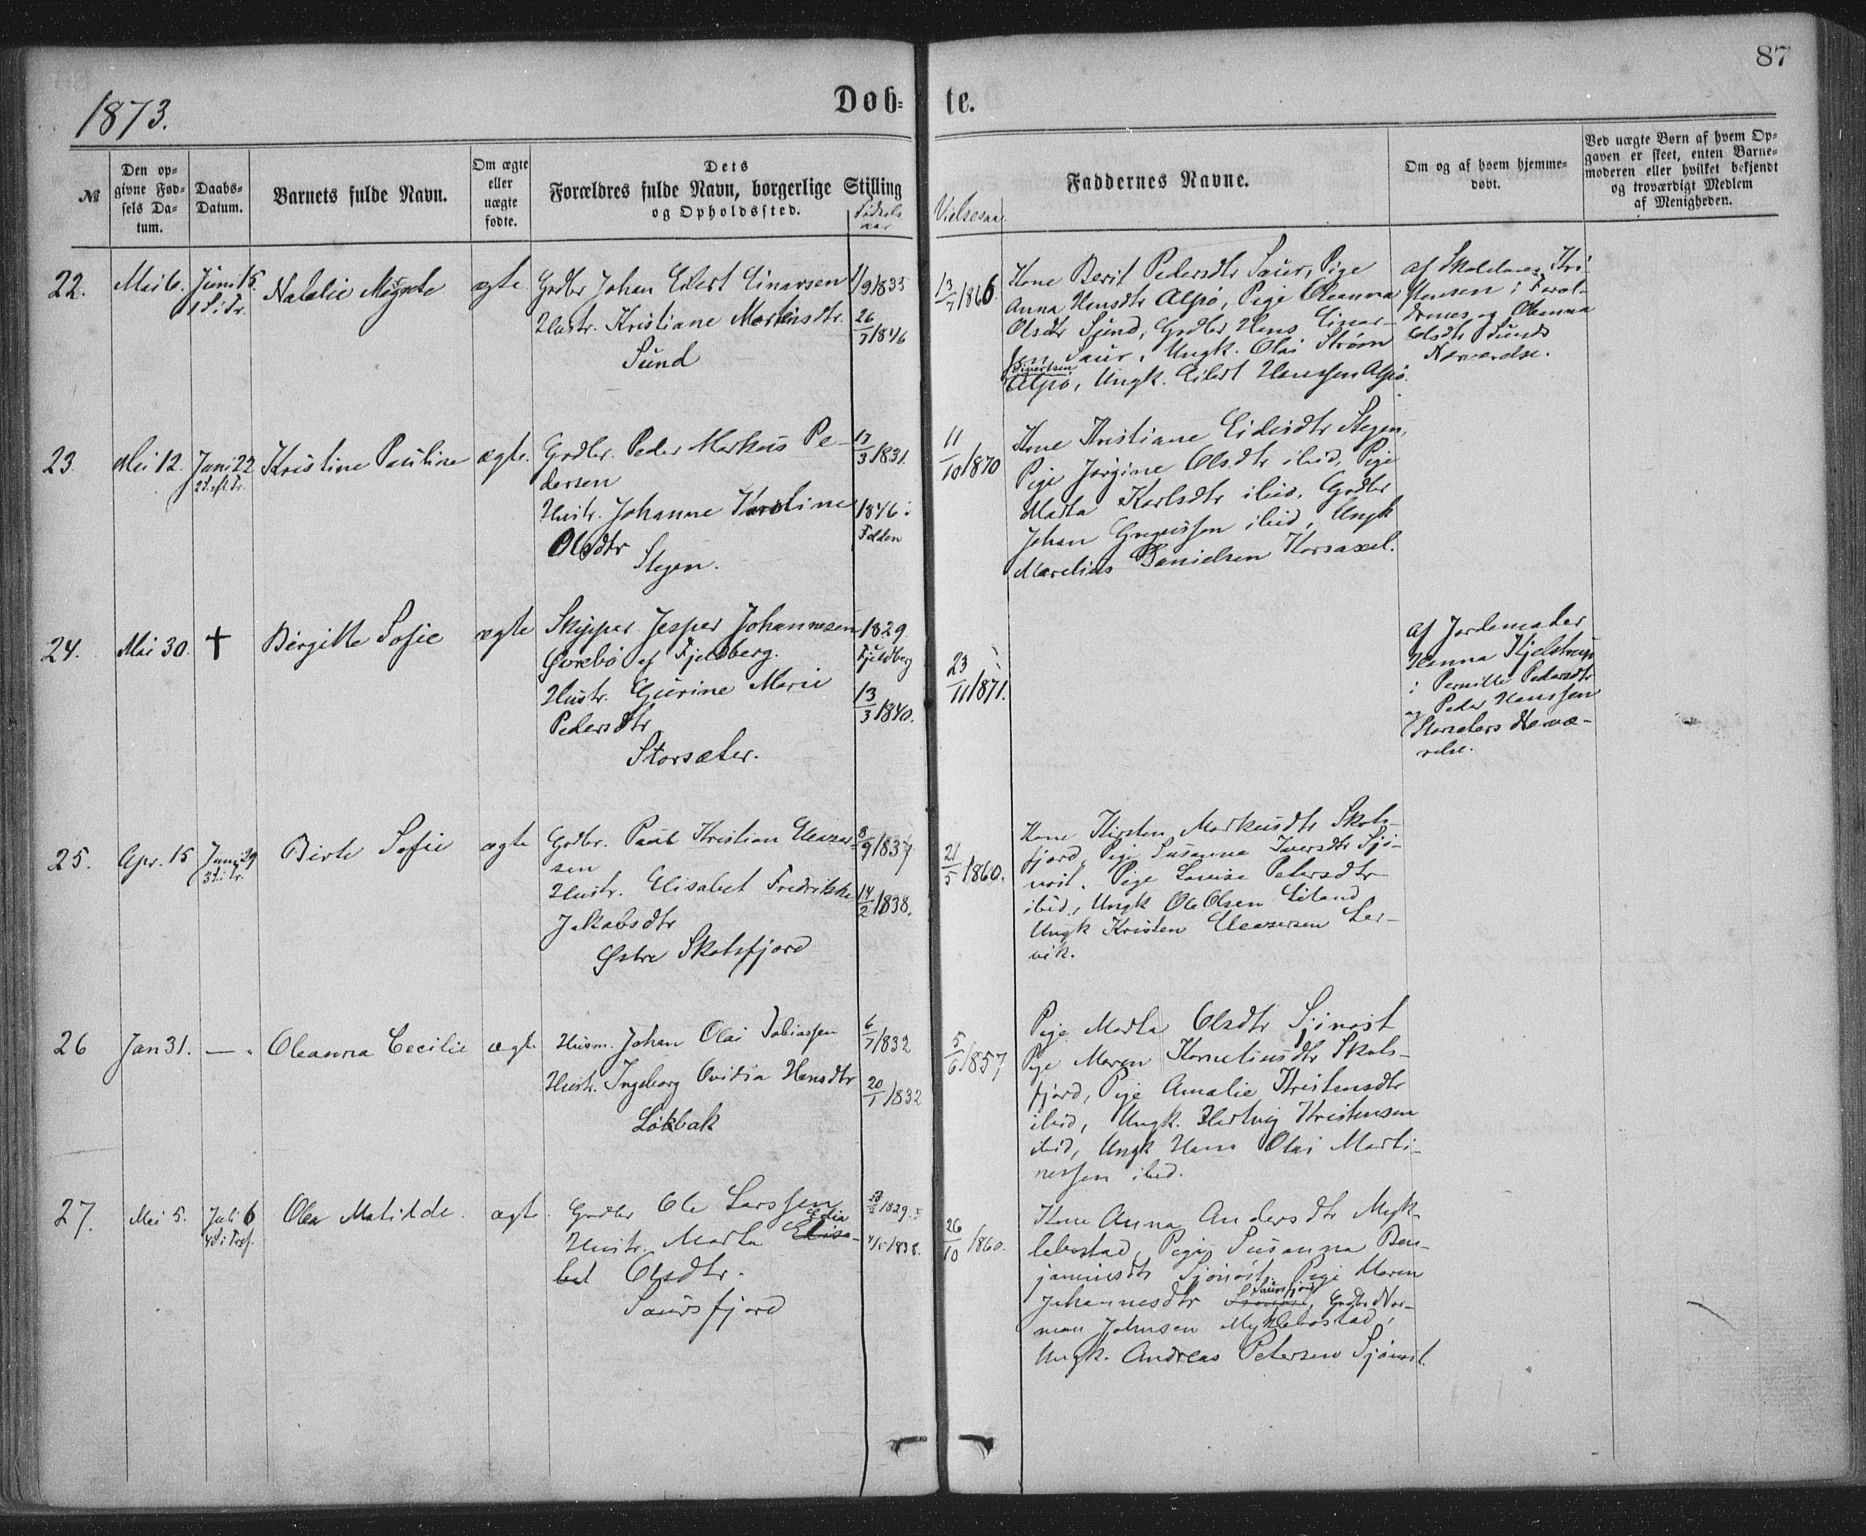 87
1873.
Døb-
te.
№
Den op-
givne Fød-
sels Da-
tum.
Daabs-
Datum.
Barnets fulde Navn.
Om ægte
eller
uægte
fødte.
Dets
Forældres fulde Navn, borgerlige Stilling
og Opholdssted.
Fødsels
aar
Vielsesaar
Faddernes Navne.
Om og af hvem hjemme-
døbt.
Ved uægte Børn af hvem Op-
gaven er skeet, enten Barne-
moderen eller hvilket bekjendt
og troværdigt Medlem
af Menigheden.
22.
Mai 6.
Juni 15.
1 S. i Tr.
Natalie
ægte
Grdbr Johan Edert Einarsen
Hustr. Kristiane Martinsdtr.
Sund
/9 1835
26/7 1846
13/7 1866
Kone Berit Pedersdtr Saur, Pige
Anna Hansdtr Alpø, Pige Oleanna
Olsdtr Sund, Grdbr Hans Einar-
sen Saur, Ungk. Olai Strøm
Sivertsen
Alpø, Ungk. Eilert Hanssen Alpø.
af Skolelærer Kri-
stensen i Foræl-
drenes og Oleanna
Olsdtr Sunds
Nærværelse.
23
Mai 12.
Juni 22
2 S. eft. Tr.
Kristine Pauline
ægte.
Grdbr. Peder Markus Pe-
dersen
Hustr. Johanne Karoline
Olsdtr
Stegen.
17/3 1831.
1846 i
Folden
11/10 1870
Kone Kristiane Eidisdtr Stegen,
Pige Jørgine Olsdtr ibid, Pige
Marta Karlsdtr ibid, Grdbr
Johan Gregussen ibid, Ungk
Marelius Danielsen Korsaxel.
24.
Mai 30.
†
Birgitte Sofie
ægte
Skipper Jesper Johannesen
Øvrebø af Fjeldberg.
Hustr. Gurine Marie
Pedersdtr
Storsæter.
1829
Fjeldberg
13/3 1840.
23/11 1871.
af Jordemoder
Hanna Kjelstrup
i Pernille Pedersdtr
og Peder Hanssen
Storsæters Nærvæ-
relse.
25.
Apr. 15
Juni 29
3 S. i Tr.
Birte Sofie
ægte
Grdbr. Paul Kristian Eleazar
sen
Hustr. Elisabet Fredrikke
Jakobsdtr
Østre Skotsfjord
8/9 1837
14/2 1838.
21/5 1860.
Kone Kirsten Markusdtr Skots-
fjord, Pige Susanna Iversdtr Sjø-
nøst. Pige Lovise Petersdtr
ibid, Ungk Ole Olsen Eiland
Ungk Kristen Eleasersen Ler-
vik.
26
Jan 31.
— "
Oleanna Cecilie
ægte
Husm. Johan Olai Tobiassen
Hustr. Ingeborg Ovidia Hansdtr
Løkbak
6/7 1832
20/1 1832
5/6 1857
Pige Marta Olsdtr Sjønøst
Pige Maren Korneliusdtr Skots-
fjord, Pige Amalie Kristensdtr
ibid, Ungk. Hartvig Kristensen
ibid, Ungk Hans Olai Marti-
nessen ibid.
27.
Mai 5.
Juli 6
4 S. i Tref.
Olea Matilde.
ægte
Grdbr Ole Larssen
Edia
Hustr. Marta Elisa-
bet Olsdtr.
Saursfjord
/2 1829.
4/5 1838.
26/10 1860.
Kone Anna Andersdtr Myk-
lebostad, Pige Susanna Ben-
jaminsdtr Sjønøst, Pige Maren
Saursfjord
Johannesdtr Sjønøst, Grdbr Nor-
man Johnsen Myklebostad,
Ungk. Andreas Petersen Sjønøst.